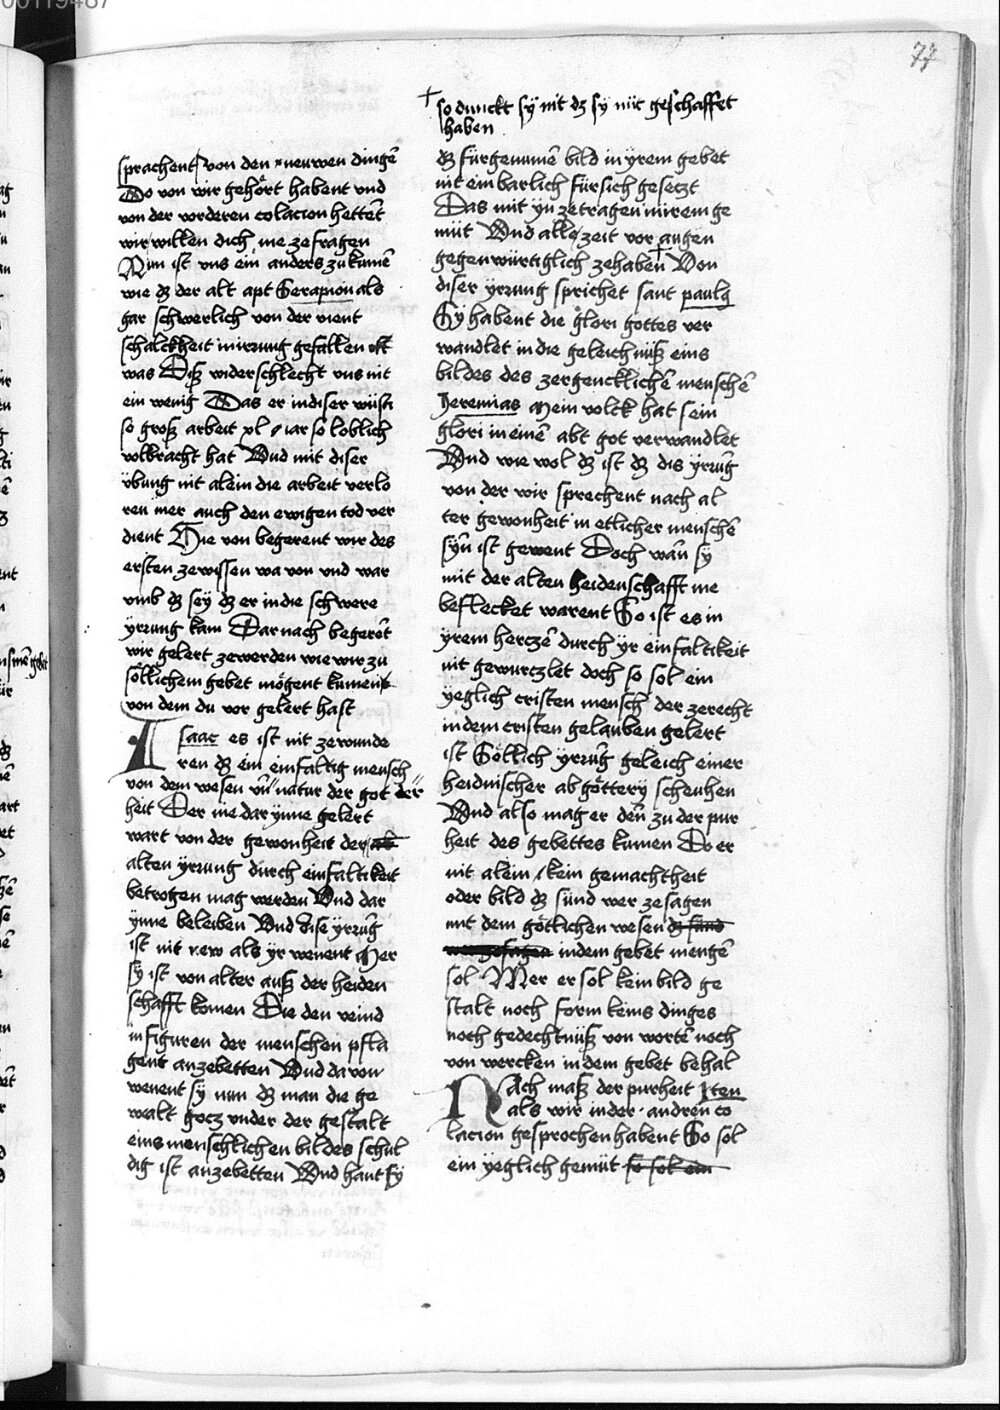 77
sprachent von den neuwen dingē
Do von wir gehört habent vnd
von der vorderen colacion hettēt
wir willen dich me ze fragen
Nun ist vns ein anders zu kumē
wie dz der alt apt Serapion als
gar schwerlich von der vient
schalckheit in irrung gefallen
was Disz widerschlecht vns nit
ein wenig Das er in diser wüsti
so grosz arbeit xl iar so loblich
volbracht hat Vnd mit diser
übung nit alein die arbeit verlo
ren mer auch den ewigen tod ver
dient Hie von begerent wir des
ersten ze wissen wa von vnd war
vmb dz sey dz er in die schwere
yrrung kam Dar nach begerēt
wir gelert ze werden wie wir zu
söllichem gebet mögent kumen
von dem du vor gelert hast
Isaac es ist nit ze wunde
ren dz ein einfaltig mensch
von dem wesen vn̄ natur der got der
heit Der nie dar ynne gelert
wart von der gewonheit der
alten yrrung durch einfaltikeit
betrogen mag werden Vnd dar
ynne beleiben Vnd dise yrrūg
ist nit new als yr wenent Mer
sy ist von alter ausz der heiden
schafft komen Die den veind
in figuren der menschen pfla
gent anzebetten Vnd da von
wenent sy nun dz man die ge
walt gocz vnder der gestalt
eins menschlichen bildes schul
dig ist anzebetten Vnd hant sy
+ so dunckt sy nit dz sy nüt geschaffet
haben
dz fürgenumē bild in yrem gebet
nit einbarlich für sich gesetzt
Das mit yn ze tragen in irem ge
müt Vnd alle zeit vor augen
gegenwürtiglich ze haben + Von
diser yrrung sprichet sant pauls
Sy habent die glori gottes ver
wandlet in die geleichnüsz eins
bildes des zergencklichē menschē
Jeremias Mein volck hat sein
glori in einē abt got verwandlet
Vnd wie wol dz ist dz dis yrrūg
von der wir sprechent nach al
ter gewonheit in etlicher menschē
syn ist gewent Doch wan̄ sy
mit der alten heidenschafft nie
beflecket warent So ist es in
yrem herczē durch yr einfaltikeit
nit gewurczlet doch so sol ein
yeglich cristen mensch der ze recht
in dem cristen gelauben gelert
ist Sötlich yrrūg geleich einer
heidnischer abgöttery scheuhen
Vnd also mag er den̄ zu der pur
heit des gebettes kumen Do er
nit alein kein gemachtheit
oder bild dz sünd wer ze sagen
mit dem götlichen wesen dz sünd
in dem gebet mengē
sol Mer er sol kein bild ge
stalt noch form keins dinges
noch gedechtnüsz von wortē noch
von wercken in dem gebet behal
Nach masz der purheit ten
als wir in der andren co
lacion gesprochen habent So sol
ein yeglich gemüt so sol ein